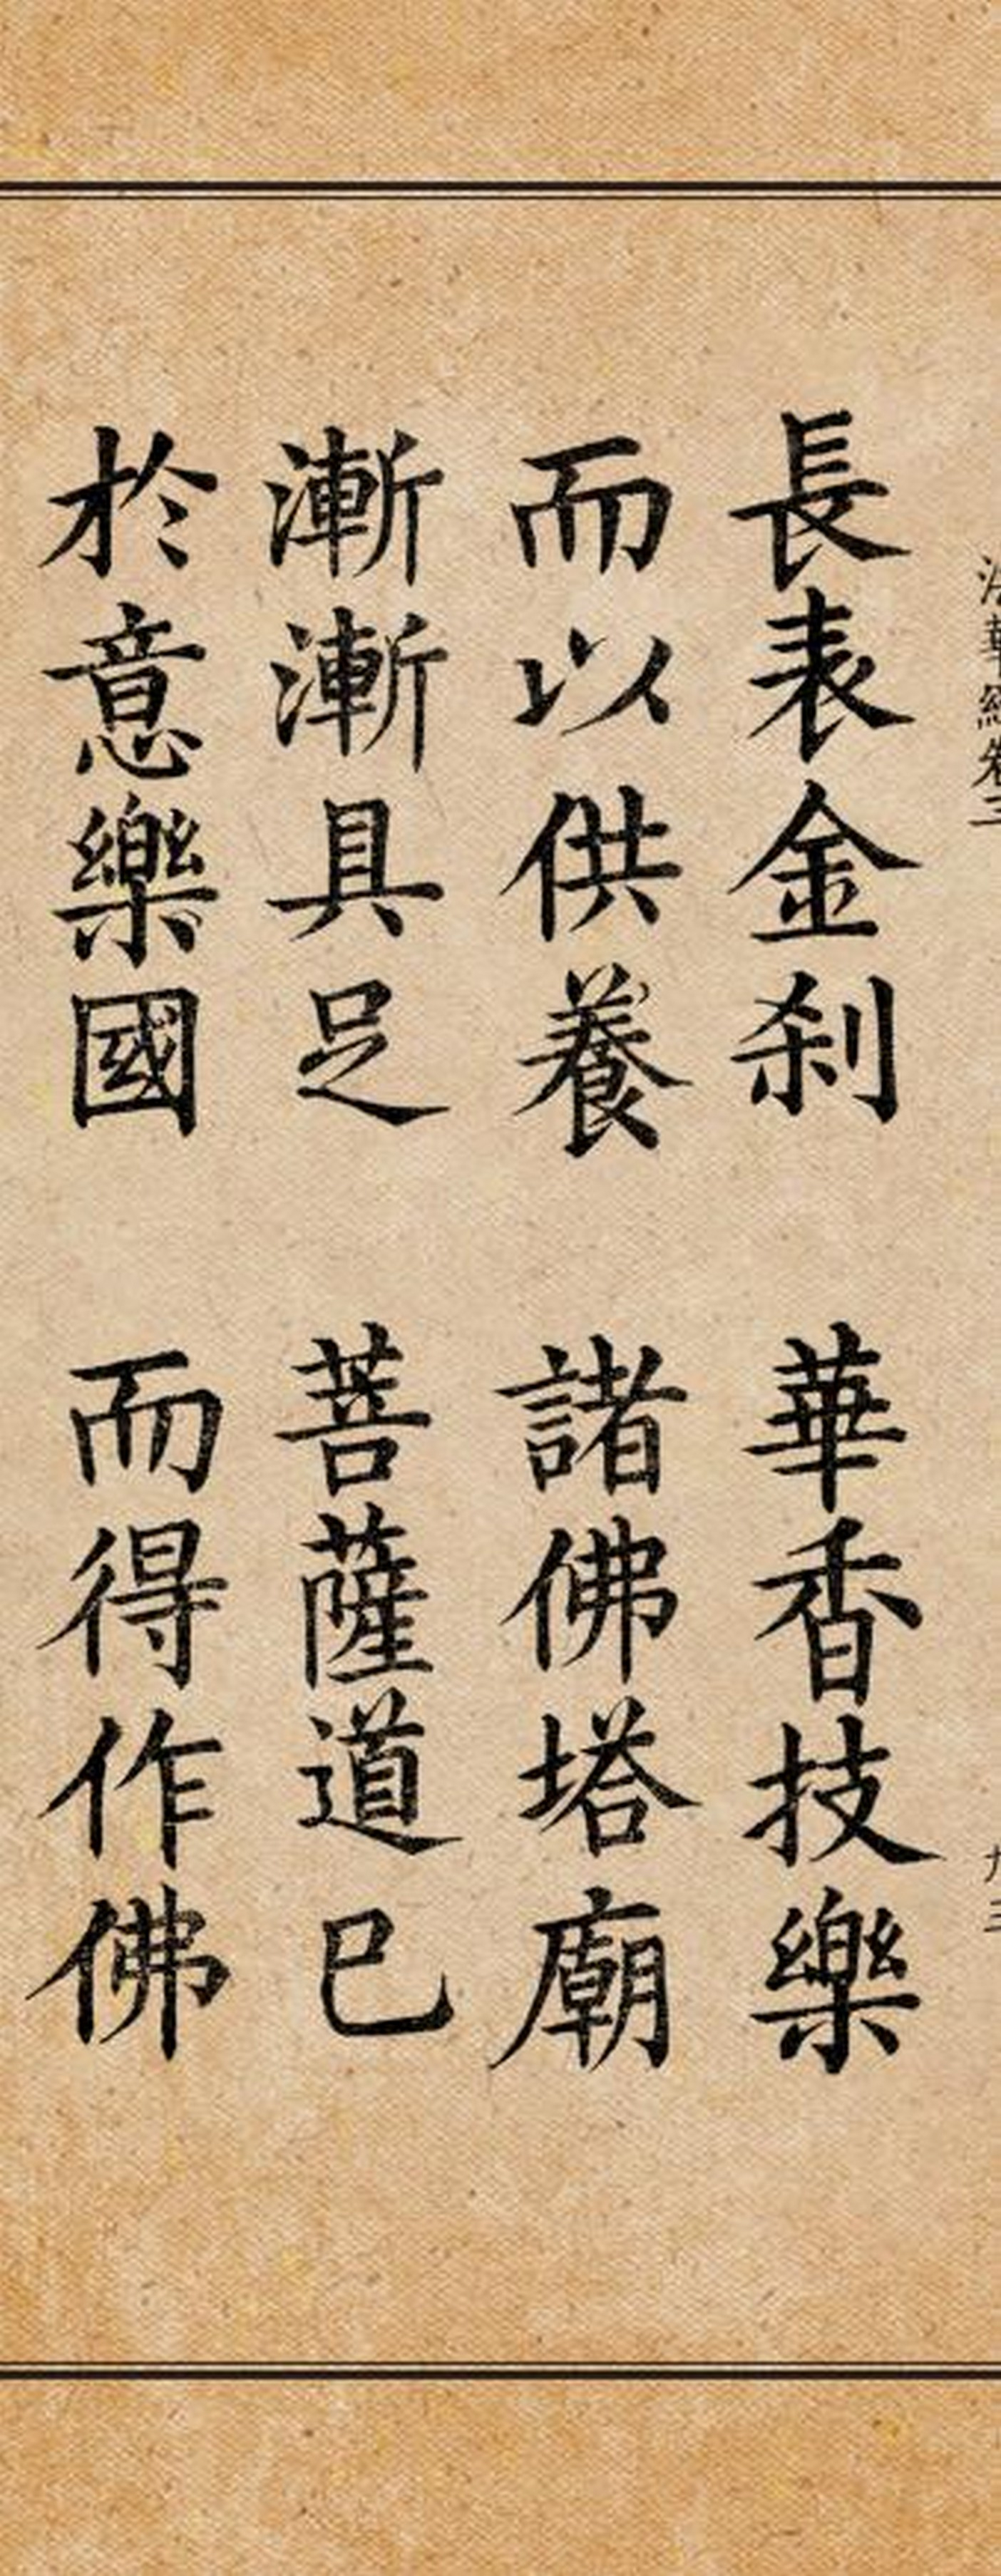 法華經卷三 九三
長表金刹 華香技樂
而以供養 諸佛塔廟
漸漸具足 菩薩道已
於意樂國 而得作佛